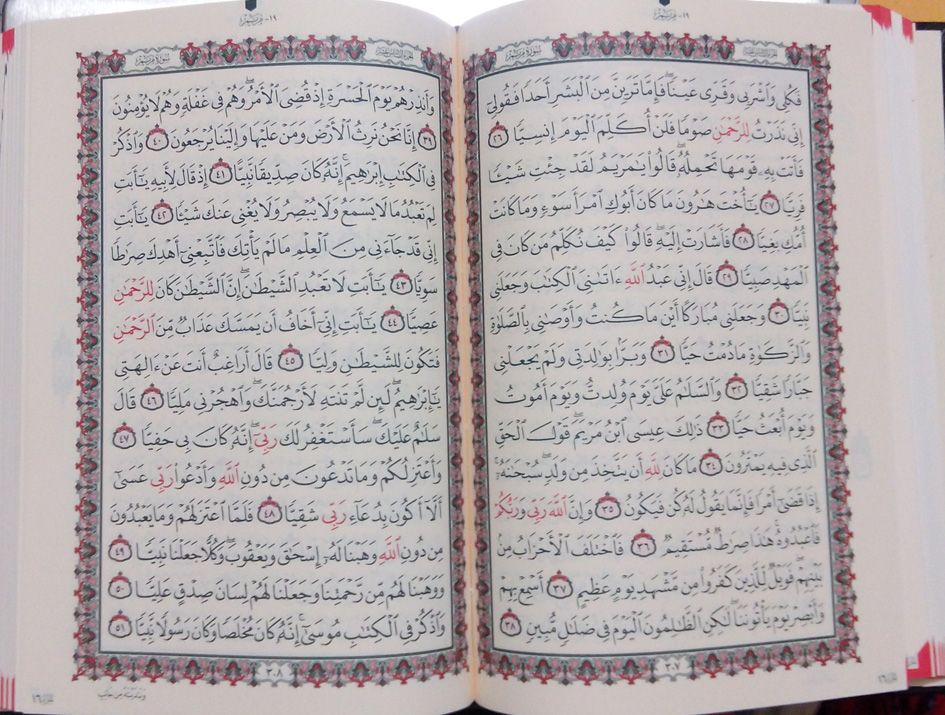 ١٩-مريم
فَكُلِي وَٱشْرَبِي وَقَرِّي عَيْنًاۖ فَإِمَّا تَرَيِنَّ مِنَ ٱلْبَشَرِ أَحَدًا فَقُولِيٓ
إِنِّي نَذَرْتُ لِلرَّحْمَٰنِ صَوْمًا فَلَنْ أُكَلِّمَ ٱلْيَوْمَ إِنسِيًّا ٢٦
فَأَتَتْ بِهِۦ قَوْمَهَا تَحْمِلُهُۥۖ قَالُوا۟ يَٰمَرْيَمُ لَقَدْ جِئْتِ شَيْـًٔا
فَرِيًّا ٢٧ يَٰٓأُخْتَ هَٰرُونَ مَا كَانَ أَبُوكِ ٱمْرَأَ سَوْءٍ وَمَا كَانَتْ
أُمُّكِ بَغِيًّا ٢٨ فَأَشَارَتْ إِلَيْهِۖ قَالُوا۟ كَيْفَ نُكَلِّمُ مَن كَانَ فِي
ٱلْمَهْدِ صَبِيًّا ٢٩ قَالَ إِنِّي عَبْدُ ٱللَّهِ ءَاتَىٰنِيَ ٱلْكِتَٰبَ وَجَعَلَنِي
نَبِيًّا ٣٠ وَجَعَلَنِي مُبَارَكًا أَيْنَ مَا كُنتُ وَأَوْصَٰنِي بِٱلصَّلَوٰةِ
وَٱلزَّكَوٰةِ مَا دُمْتُ حَيًّا ٣١ وَبَرًّۢا بِوَٰلِدَتِي وَلَمْ يَجْعَلْنِي
جَبَّارًا شَقِيًّا ٣٢ وَٱلسَّلَٰمُ عَلَيَّ يَوْمَ وُلِدتُّ وَيَوْمَ أَمُوتُ
وَيَوْمَ أُبْعَثُ حَيًّا ٣٣ ذَٰلِكَ عِيسَى ٱبْنُ مَرْيَمَۖ قَوْلَ ٱلْحَقِّ
ٱلَّذِي فِيهِ يَمْتَرُونَ ٣٤ مَا كَانَ لِلَّهِ أَن يَتَّخِذَ مِن وَلَدٍۖ سُبْحَٰنَهُۥٓۚ
إِذَا قَضَىٰٓ أَمْرًا فَإِنَّمَا يَقُولُ لَهُۥ كُن فَيَكُونُ ٣٥ وَإِنَّ ٱللَّهَ رَبِّي وَرَبُّكُمْ
فَٱعْبُدُوهُۚ هَٰذَا صِرَٰطٌ مُّسْتَقِيمٌ ٣٦ فَٱخْتَلَفَ ٱلْأَحْزَابُ مِنۢ
بَيْنِهِمْۖ فَوَيْلٌ لِّلَّذِينَ كَفَرُوا۟ مِن مَّشْهَدِ يَوْمٍ عَظِيمٍ ٣٧ أَسْمِعْ بِهِمْ
وَأَبْصِرْ يَوْمَ يَأْتُونَنَاۖ لَٰكِنِ ٱلظَّٰلِمُونَ ٱلْيَوْمَ فِي ضَلَٰلٍ مُّبِينٍ ٣٨
٣٠٧
١٩-مريم
وَأَنذِرْهُمْ يَوْمَ ٱلْحَسْرَةِ إِذْ قُضِيَ ٱلْأَمْرُ وَهُمْ فِي غَفْلَةٍ وَهُمْ لَا يُؤْمِنُونَ
٣٩ إِنَّا نَحْنُ نَرِثُ ٱلْأَرْضَ وَمَنْ عَلَيْهَا وَإِلَيْنَا يُرْجَعُونَ ٤٠ وَٱذْكُرْ
فِي ٱلْكِتَٰبِ إِبْرَٰهِيمَۚ إِنَّهُۥ كَانَ صِدِّيقًا نَّبِيًّا ٤١ إِذْ قَالَ لِأَبِيهِ يَٰٓأَبَتِ
لِمَ تَعْبُدُ مَا لَا يَسْمَعُ وَلَا يُبْصِرُ وَلَا يُغْنِي عَنكَ شَيْـًٔا ٤٢ يَٰٓأَبَتِ
إِنِّي قَدْ جَآءَنِي مِنَ ٱلْعِلْمِ مَا لَمْ يَأْتِكَ فَٱتَّبِعْنِيٓ أَهْدِكَ صِرَٰطًا
سَوِيًّا ٤٣ يَٰٓأَبَتِ لَا تَعْبُدِ ٱلشَّيْطَٰنَۖ إِنَّ ٱلشَّيْطَٰنَ كَانَ لِلرَّحْمَٰنِ
عَصِيًّا ٤٤ يَٰٓأَبَتِ إِنِّيٓ أَخَافُ أَن يَمَسَّكَ عَذَابٌ مِّنَ ٱلرَّحْمَٰنِ
فَتَكُونَ لِلشَّيْطَٰنِ وَلِيًّا ٤٥ قَالَ أَرَاغِبٌ أَنتَ عَنْ ءَالِهَتِي
يَٰٓإِبْرَٰهِيمُۖ لَئِن لَّمْ تَنتَهِ لَأَرْجُمَنَّكَۖ وَٱهْجُرْنِي مَلِيًّا ٤٦ قَالَ
سَلَٰمٌ عَلَيْكَۖ سَأَسْتَغْفِرُ لَكَ رَبِّيٓۖ إِنَّهُۥ كَانَ بِي حَفِيًّا ٤٧
وَأَعْتَزِلُكُمْ وَمَا تَدْعُونَ مِن دُونِ ٱللَّهِ وَأَدْعُوا۟ رَبِّي عَسَىٰٓ
أَلَّآ أَكُونَ بِدُعَآءِ رَبِّي شَقِيًّا ٤٨ فَلَمَّا ٱعْتَزَلَهُمْ وَمَا يَعْبُدُونَ
مِن دُونِ ٱللَّهِ وَهَبْنَا لَهُۥٓ إِسْحَٰقَ وَيَعْقُوبَۖ وَكُلًّا جَعَلْنَا نَبِيًّا ٤٩
وَوَهَبْنَا لَهُم مِّن رَّحْمَتِنَا وَجَعَلْنَا لَهُمْ لِسَانَ صِدْقٍ عَلِيًّا ٥٠
وَٱذْكُرْ فِي ٱلْكِتَٰبِ مُوسَىٰٓۚ إِنَّهُۥ كَانَ مُخْلَصًا وَكَانَ رَسُولًا نَّبِيًّا ٥١
٣٠٨